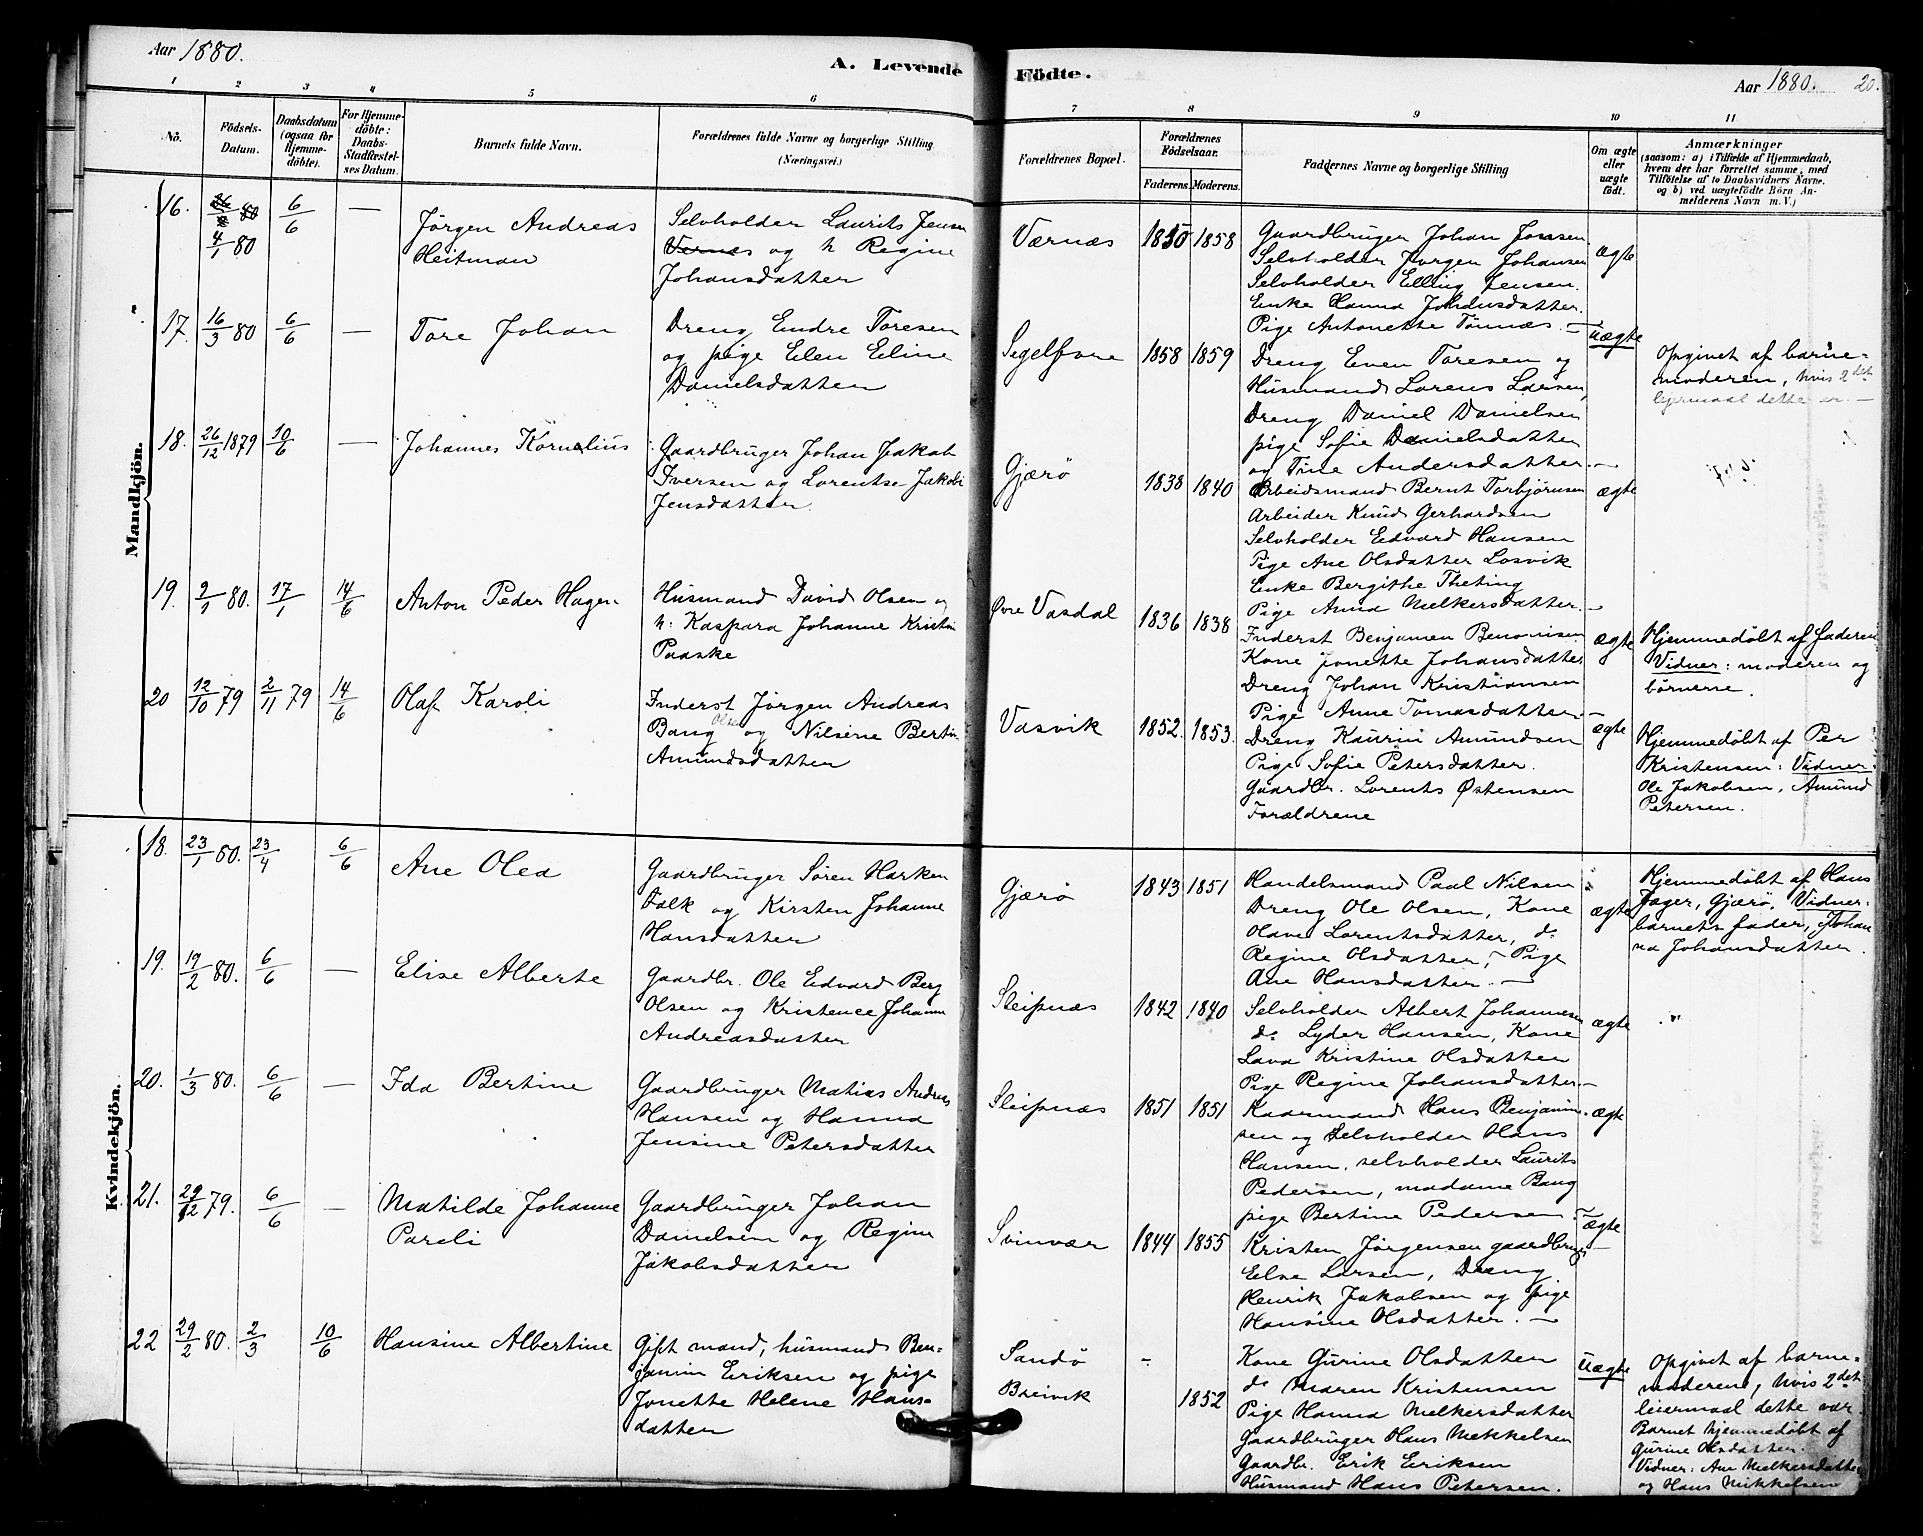 Aar 1880.
A. Levende
1 2 3 4 5 6
No.
Födsels-
Datum.
Daabsdatum
(ogsaa for
Hjemme-
döbte).
For Hjemme-
döbte:
Daabs-
Stadfæstel-
ses Datum.
Barnets fulde Navn.
Forældrenes fulde Navne og borgerlige Stilling
(Næringsvei.)
Mandkjön.
16. 4/1 80 6/6 —
Jørgen Andreas
Heitman
Selvholder Laurits Jensen
Værnes og h Regine
Johansdatter
17. 16/3 80 6/6 —
Tore Johan
Dreng Endre Toresen
og pige Elen Eline
Danielsdatter
18. 26/12 1879 10/6 —
Johannes Kornelius
Gaardbruger Johan Jakob
Iversen og Lorentse Jakobi
Jensdatter.
19. 9/1 80. 17/1 14/6
Anton Peder Hagen
Husmand David Olsen og
h: Kaspara Johanne Kristin
Paaske
20 12/10 79 2/11 79 14/6
Olaf Karoli
Inderst Jørgen Andreas
Bang Olsen og Nilsine Bertin
Amundsdatter
Kvindekjön.
18. 23/1 80. 23/4 6/6
Ane Olea
Gaardbruger Søren Harken
Falk og Kirsten Johanne
Hansdatter
19. 19/2 80. 6/6 —
Elise Alberte
Gaardbr. Ole Edvard Berg
Olsen og Kristence Johanne
Andreasdatter
20. 1/3 80. 6/6 —
Ida Bertine
Gaardbruger Matias Andreas
Hansen og Hanna
Jensine Petersdatter
21. 29/12 79. 6/6 —
Matilde Johanne
Pareli
Gaardbruger Johan
Danielsen og Regine
Jakobsdatter
22 29/2 80. 2/3 10/6
Hansine Albertine
Gift mand, husmand Ben-
jamin Eriksen og pige
Jonette Helene Hans-
datter
Födte.
Aar 1880. 20.
7 8 9 10 11
Forældrenes Bopæl.
Forældrenes
Födselsaar.
Faderens. Moderens.
Faddernes Navne og borgerlige Stilling
Om ægte
eller
uægte
födt.
Anmærkninger
(saasom: a) i Tilfælde af Hjemmedaab,
hvem der har forrettet samme, med
Tilföielse af to Daabsvidners Navne.
og b) ved uægtefödte Börn An-
melderens Navn m. V.)
Værnæs 1850 1858
Gaardbruger Johan Jonsen
Selvholder Jørgen Johansen
Selvholder Elling Jensen.
Enke Hanna Johansdatter.
Pige Antonette Tönnæs. —
ægte
Segelfore 1858 1859
Dreng Even Toresen og
Husmand Lorens Larsen,
Dreng Daniel Danielsen
pige Sofie Danielsdatter
og Trine Andersdatter. —
uægte
Opgivet af barne-
moderen, hvis 2det
lejermaal dette er —
Gjærø 1838 1840
Arbeidsmand Bernt Torbjørnsen
Arbeider Knud Gerhardsen
Selvholder Edvard Hansen
Pige Ane Olsdatter Losvik
Enke Bergithe Theting
Pige Anna Melkersdatter. —
ægte
Øvre Vasdal 1836 1838
Inderst Benjamin Benonisen
Kone Jonette Johansdatter
Dreng Johan Kristiansen
Pige Anne Tomasdatter. —
ægte
Hjemmedøbt af faderen
Vidner: moderen og
börnene.
Vasvik 1852. 1853.
Dreng Kaurin Amundsen
Pige Sofie Petersdatter.
Gaardbr. Lorents Østensen
Forældrene
ægte
Hjemmedøbt af Per
Kristensen: Vidner:
Ole Jakobsen, Amund
Petersen.
Gjærø 1843 1851
Handelsmand Paal Nilsen
Dreng Ole Olsen, Kone
Olava Lorentsdatter, do
Regine Olsdatter, Pige
Ane Hansdatter. —
ægte
Hjemmedøbt af Hans
Jager, Gjærø, Vidner:
barnets fader, Johan
na Johansdatter.
Sleipnæs 1842 1840
Selvholder Albert Johannesen
do Lyder Hansen, Kone
Lava Kristine Olsdatter
Pige Regine Johansdatter. —
ægte
"
Sleipnæs 1851 1851
Kaarmand Hans Benjamin-
sen og selvholder Hans
Hansen, selvholder Laurits
Pedersen, madame Bang
pige Bertine Pedersen
ægte
Svinvær 1844 1855
Kristen Jørgensen gaardbrug
Else Larsen, Dreng
Henrik Jakobsen og pige
Hansine Olsdatter. —
ægte
Sandö
Breivik 1852
Kone Gurine Olsdatter
do Maren Kristensen
Pige Hanna Melkersdatter
Gaardbruger Hans Mekkelsen
Gaardbr. Erik Eriksen
Husmand Hans Petersen.
uægte
Opgivet af barne-
moderen, hvis 2det
leiermaal dette var
Barnet hjemmedøbt af
Gurine Olsdatter.
Vidner: Ane Melkersdatter
og Hans Mikkelsen